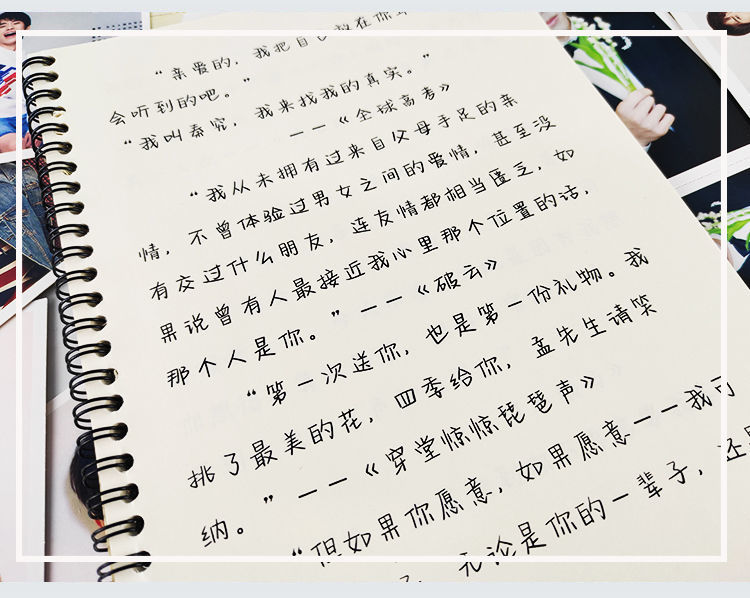 “亲爱的，我把自己放在你
会听到的吧。”
“我叫秦究，我来找我的真实。”
——《全球高考》
“我从未拥有过来自父母手足的亲
情，不曾体验过男女之间的爱情，甚至没
有交过什么朋友，连友情都相当匮乏，如
果说曾有人最接近我心里那个位置的话，
那个人是你。”——《破云》
“第一次送你，也是第一份礼物。我
挑了最美的花，四季给你，孟先生请笑
纳。”——《穿堂惊惊琵琶声》
“但如果你愿意，如果愿意——我可
无论是你的一辈子，还